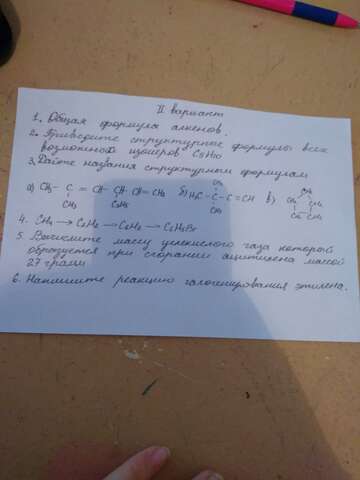 II вариант
1. Общая формула алкенов.
2. Приведите структурные формулы всех
возможных изомеров C5H10
3. Дайте названия структурным формулам
CH3
CH2
а) CH3 - C = CH - CH - CH = CH2 б) H3C - C - C ≡ CH в)
CH3 C2H5 CH3
4. CH4 → C2H2 → C2H4 → C2H5Br
5. Вычислите массу углекислого газа который
образуется при сгорании ацетилена массой
27 грамм
6. Напишите реакцию галогенирования этилена.